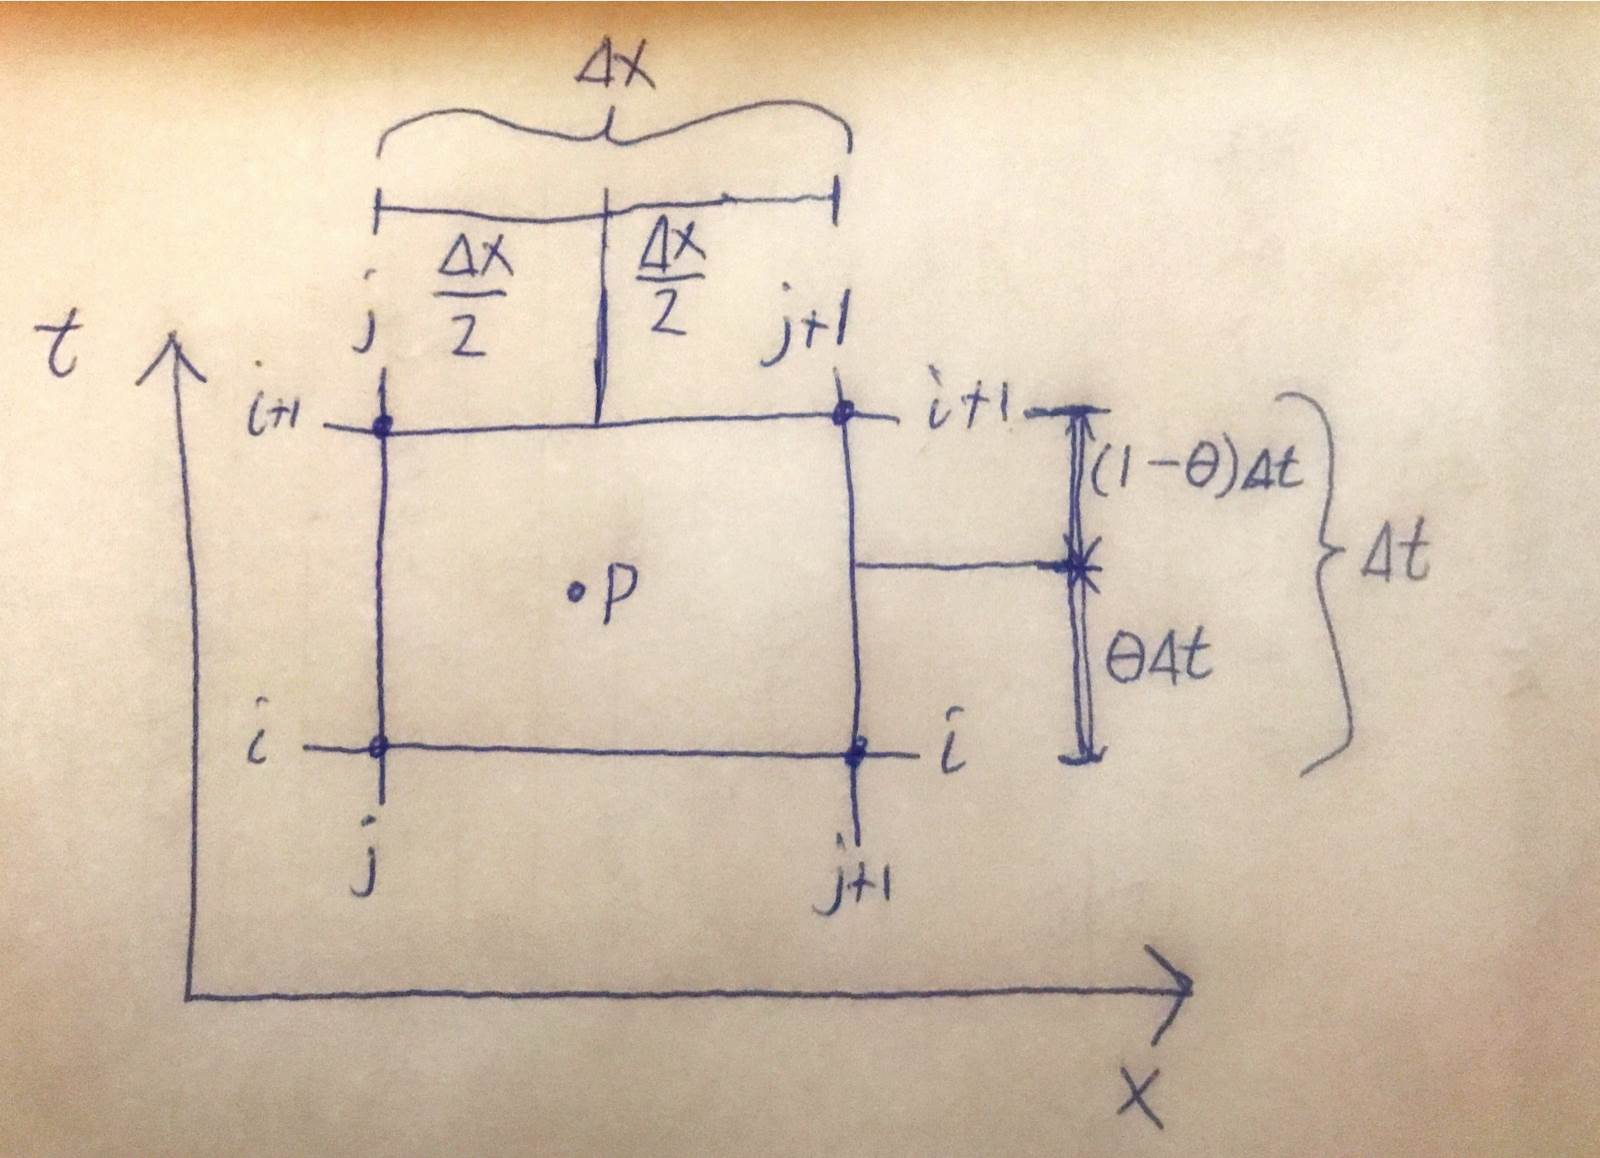 Δx
Δx/2 Δx/2
j j+1
t
i+1 i+1
(1-θ)Δt
Δt
•P
θΔt
i i
j j+1
x